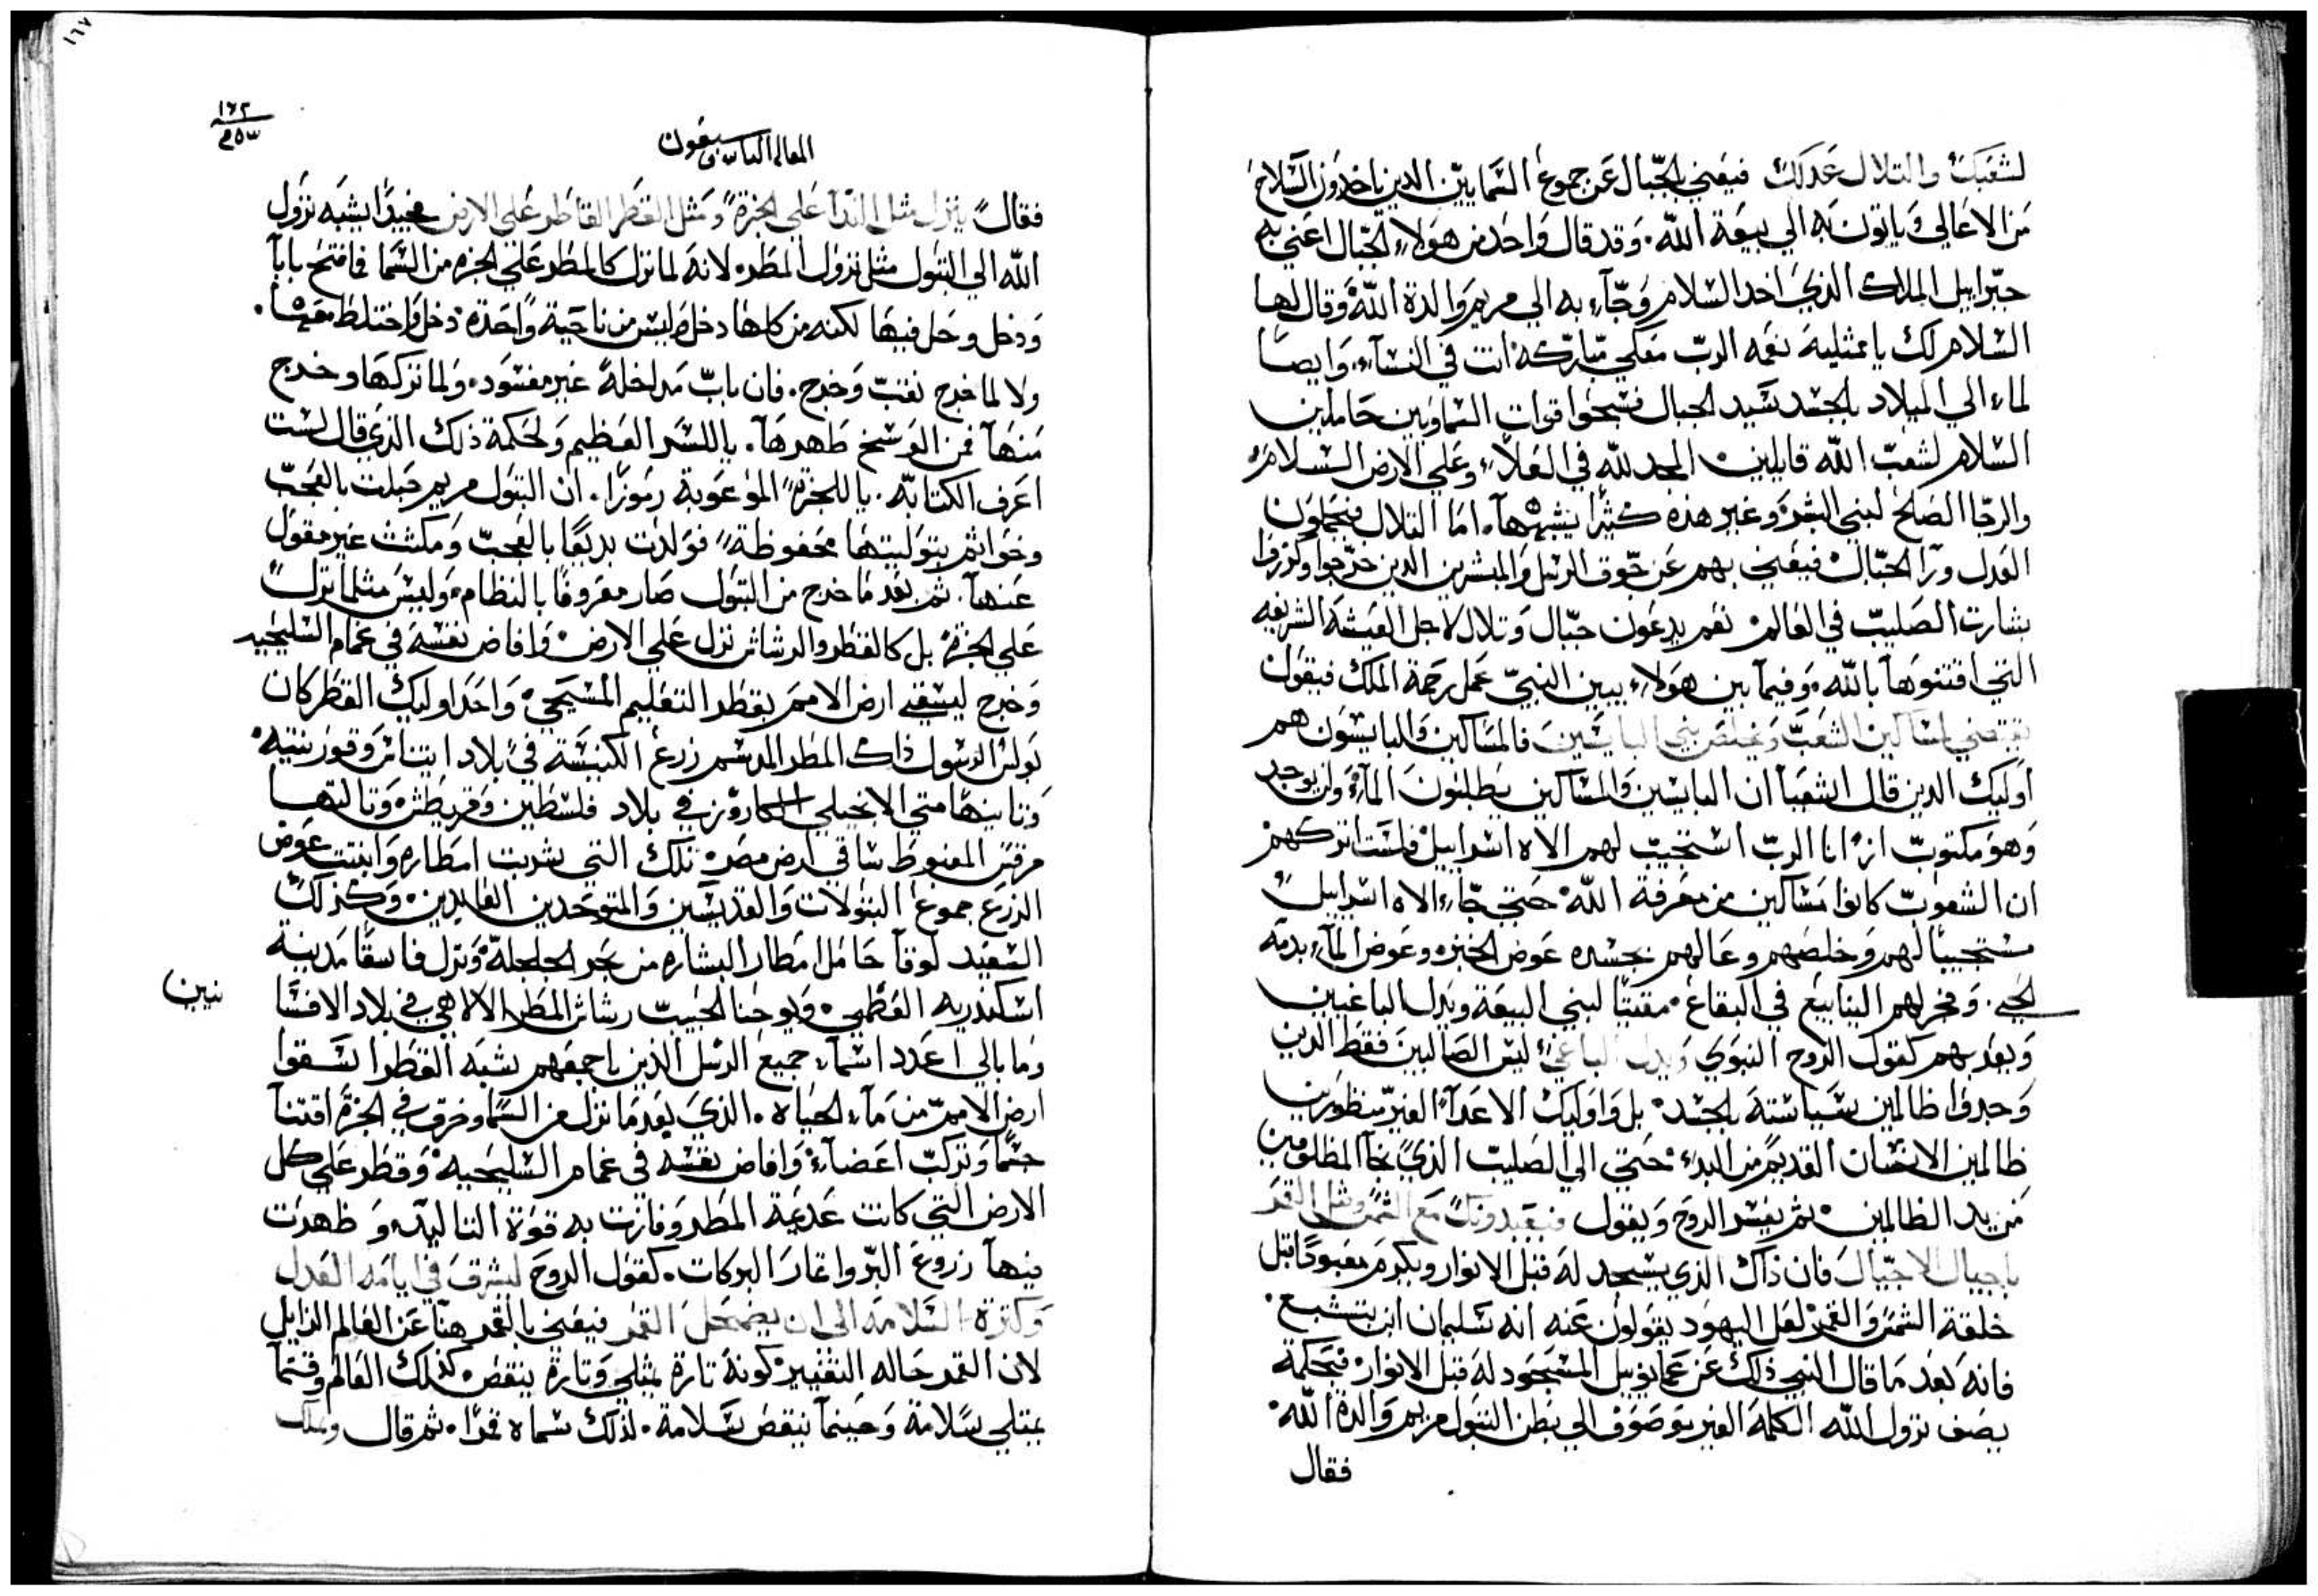 لشعبك والتلال عدلك فيعني بالجبال عن جموع السمايين الدين ياخدون السلام
من الاعالي وياتون به الي بيعة الله. وقد قال واحد من هولاء الجبال اعني به
جبراييل الملاك الذي اخد السلام وجآء به الي مريم والدة الله وقال لها
السلام لك يا ممتلية نعمه الرب معكي مباركه انت في النسآء. وايضا
لماء الي الميلاد بالجسد نشيد الجبال فسبحوا قوات السماويين حاملين
السلام لشعب الله قايلين المجد لله في العلاء وعلي الارض السلام
والرجا الصلح لبني البشر وغير هذه كثيرا يشبهها. اما التلال فيحملون
العدل ورآ الجبال فيعني بهم عن جوق الرسل والمبشرين الدين خرجوا وكرزوا
بشارت الصليب في العالم نعم يدعون جبال وتلال لاجل العيشة الشريفه
التي اقتنوها بالله. وفيما بين هولاء يبين النبي عمل رحمة الملك فيقول
يقتضي لمساكين الشعب ويخلص بني البايسين فالمساكين والبايسون هم
اوليك الدين قال اشعيا ان البايسين والمساكين يطلبون المآء ولن يوجد
وهو مكتوب ان انا الرب استجيب لهم الاه اسراييل فلست اتركهم
ان الشعوب كانوا مساكين من معرفة الله حتي جآء الاه اسراييل
مستجيبا لهم وخلصهم وعالهم بجسده عوض الخبز وعوض المآء بدمه
الحي. وفجر لهم الينابيع في البقاع مقيتا لبني البيعة ويدل الباغيين
وبعد بهم كقول الروح النبوي ويدل الباغي ليس الصالبين فقط الدين
وجدوا ظالمين بسياسته بالجسد بل واوليك الاعدآء الغير منظورين
ظالمين الانسان القديم من البدء حتي الي الصليب الذي نجا المظلومين
من يد الظالمين ثم يفسر الروح ويقول فيعبدونك مع الشمس وقبل القمر
باجيال الاجيال فان ذاك الذي يسجد له قبل الانوار ويكرم معبودا قبل
خلقة الشمس والقمر لعل اليهود يقولون عنه انه سليمان ابن بتشبع.
فانه بعد ما قال النبي ذلك عن عمانوييل المسجود له قبل الانوار فبحكمة
يصف نزول الله الكلمة الغير موصوف الي بطن البتول مريم والدة الله
فقال
١٦٧
١٦٢
سبعون
فقال ينزل مثل الندآ علي الجزة ومثل القطر القاطر علي الارض فجيدا يشبه نزول
الله الي البتول مثل نزول المطر لانه لما نزل كالمطر علي الجزه من السما فافتح بابا
ودخل وحل فيها لكنه من كلها دخل وليس من ناحية واحدة دخل واختلط معها.
ولا لما خرج نقب وخرج. فان باب مدخله غير مفسود. ولما تركها وخرج
منها فمن الوسخ طهرها. يا للسر العظيم ولحكمة ذلك الذي قال لست
اعرف الكتابه. يا للجزة الموعوبة رموزا. ان البتول مريم حبلت بالعجب
وخواتم بتوليتها محفوظة فولدت بديعا بالعجب ومكثت غير مقول
عنها. ثم بعد ما خرج من البتول صار معروفا بالنظام وليس مثلما نزل
علي الجزة بل كالقطر والرشاش نزل علي الارض وافاض نفسه في غمام السليحيه
وخرج ليسقي ارض الامم بقطر التعليم المسيحي واحد اوليك القطر كان
بولس الرسول ذاك المطر المدسم زرع الكنيسة في بلاد اتيناس وقورنتيه
وثانيها متي الانجيلي الكاروز في بلاد فلسطين وقريطش وثالثها
مرقس المغبوط ساقي ارض مصر تلك التي شربت امطاره وانبتت عوض
الزرع جموع البتولات والقديسين والمتوحدين العابدين وكذلك
السعيد لوقا حامل امطار البشاره من نحو الجلجلة ونزل فاسقا مدينة
اسكندريه العظمي ويوحنا الحبيب رشاش المطر الالاهي في بلاد الافسا
نيين
وما بالي اعدد اسمآء جميع الرسل الذين باجمعهم بشبه القطر انسقوا
ارض الامم من مآء الحياة. الذي بعد ما نزل من السما وخرق في الجزة اقتنا
جسما وتركب اعضآء وافاض نفسه في غمام السليحيه وقطر علي كل
الارض التي كانت عديمة المطر وفازت به قوة التاليه وظهرت
فيها زروع البر واتمار البركات. كقول الروح ليشرق في ايامه العدل
وكثرة السلامه الي ان يضمحل القمر فيعني بالقمر هنا عن العالم الزايل
لان القمر حاله التغيير كونه تارة يمتلي وتارة ينقص كذلك العالم وقتما
يمتلي سلامة وحينما ينقص سلامة. لذلك سماه قمرا. ثم قال ويملك